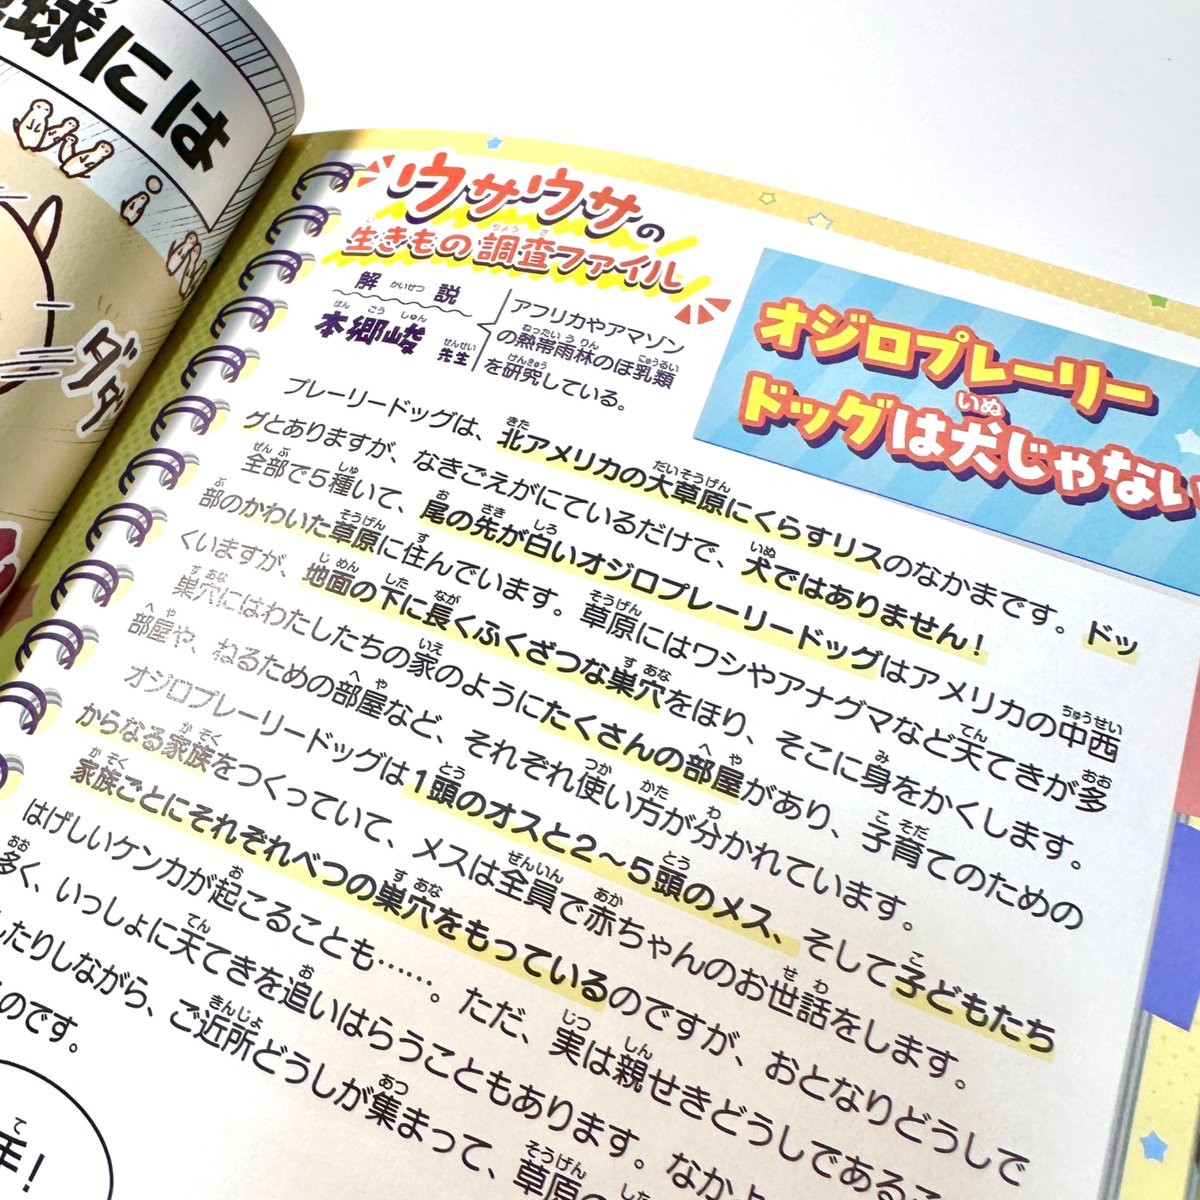 球には
ダダ
ウサウサの
生きもの調査ファイル
解説
本郷峻先生
アフリカやアマゾン
の熱帯雨林のほ乳類
を研究している。
オジロプレーリー
ドッグは犬じゃない
プレーリードッグは、北アメリカの大草原にくらすリスのなかまです。ドッ
グとありますが、なきごえがにているだけで、犬ではありません！
全部で5種いて、尾の先が白いオジロプレーリードッグはアメリカの中西
部のかわいた草原に住んでいます。草原にはワシやアナグマなど天てきが多
くいますが、地面の下に長くふくざつな巣穴をほり、そこに身をかくします。
巣穴にはわたしたちの家のようにたくさんの部屋があり、子育てのための
部屋や、ねるための部屋など、それぞれ使い方が分かれています。
オジロプレーリードッグは1頭のオスと2〜5頭のメス、そして子どもたち
からなる家族をつくっていて、メスは全員で赤ちゃんのお世話をします。
家族ごとにそれぞれべつの巣穴をもっているのですが、おとなりどうしで
はげしいケンカが起こることも……。ただ、実は親せきどうしであるこ
多く、いっしょに天てきを追いはらうこともあります。なかよ
したりしながら、ご近所どうしが集まって、草原の
のです。
手！